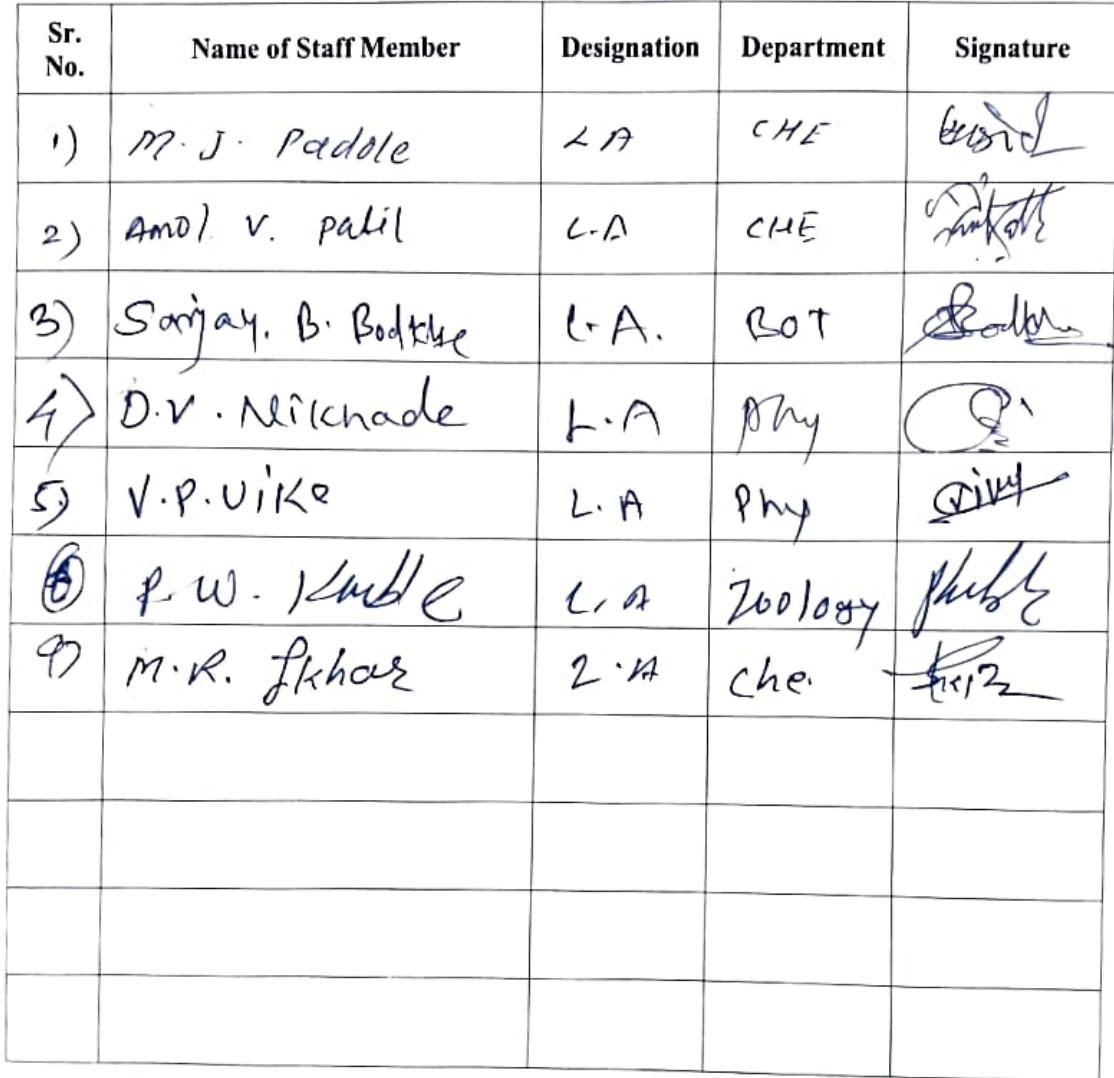 Sr. No. Name of Staff Member Designation Department Signature
1) M. J. Padole L A CHE
2) Amol V. Patil L.A CHE
3) Sanjay. B. Bodkhe L.A. BOT
4) D.V. Nikhade L.A Phy
5) V.P. Uike L.A Phy
6 P. W. L.A Zoology
7) M.R. Ikhar L.A Che.